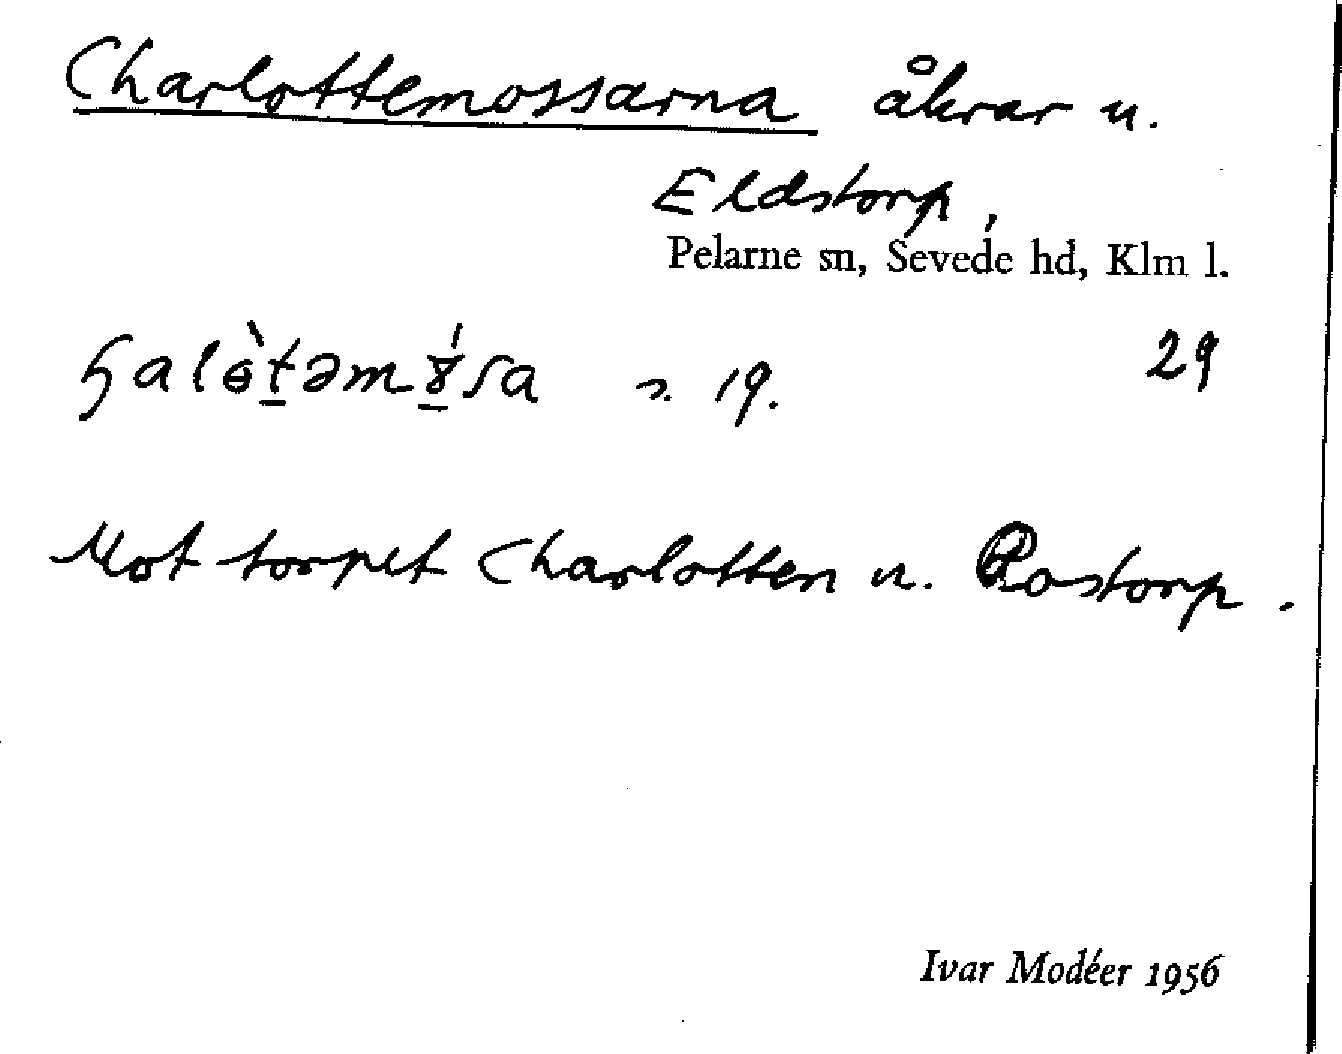 Charlottemossarna åkrar u.
Eldstorp,
Pelarne sn, Sevede hd, Klm l.
29
s. 19.
Mot torpet Charlotten u. Rostorp.
Ivar Modéer 1956